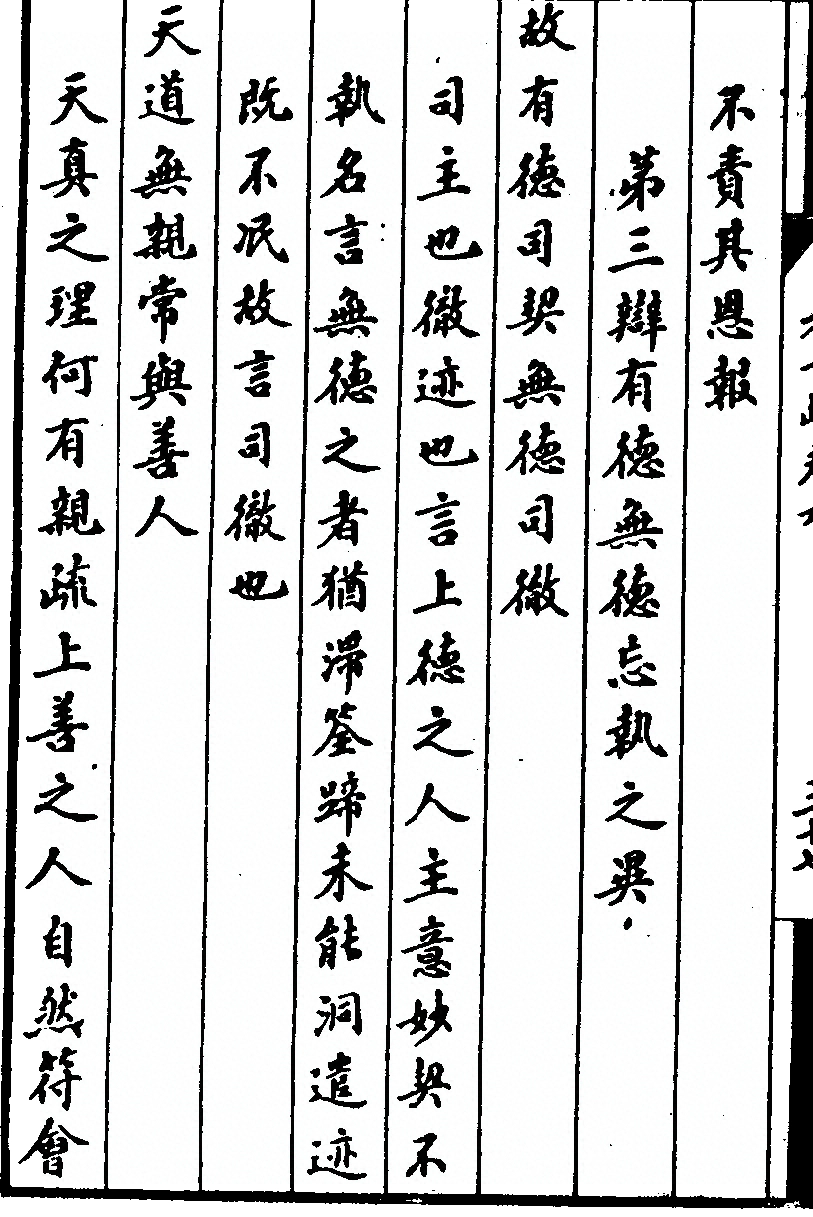 不責其恩報
第三辯有德無德忘執之異
故有德司契無德司徹
司主也徹迹也言上德之人主意妙契不
執名言無德之者猶滯筌蹄未能洞遣迹
既不泯故言司徹也
天道無親常與善人
天真之理何有親疏上善之人自然符會